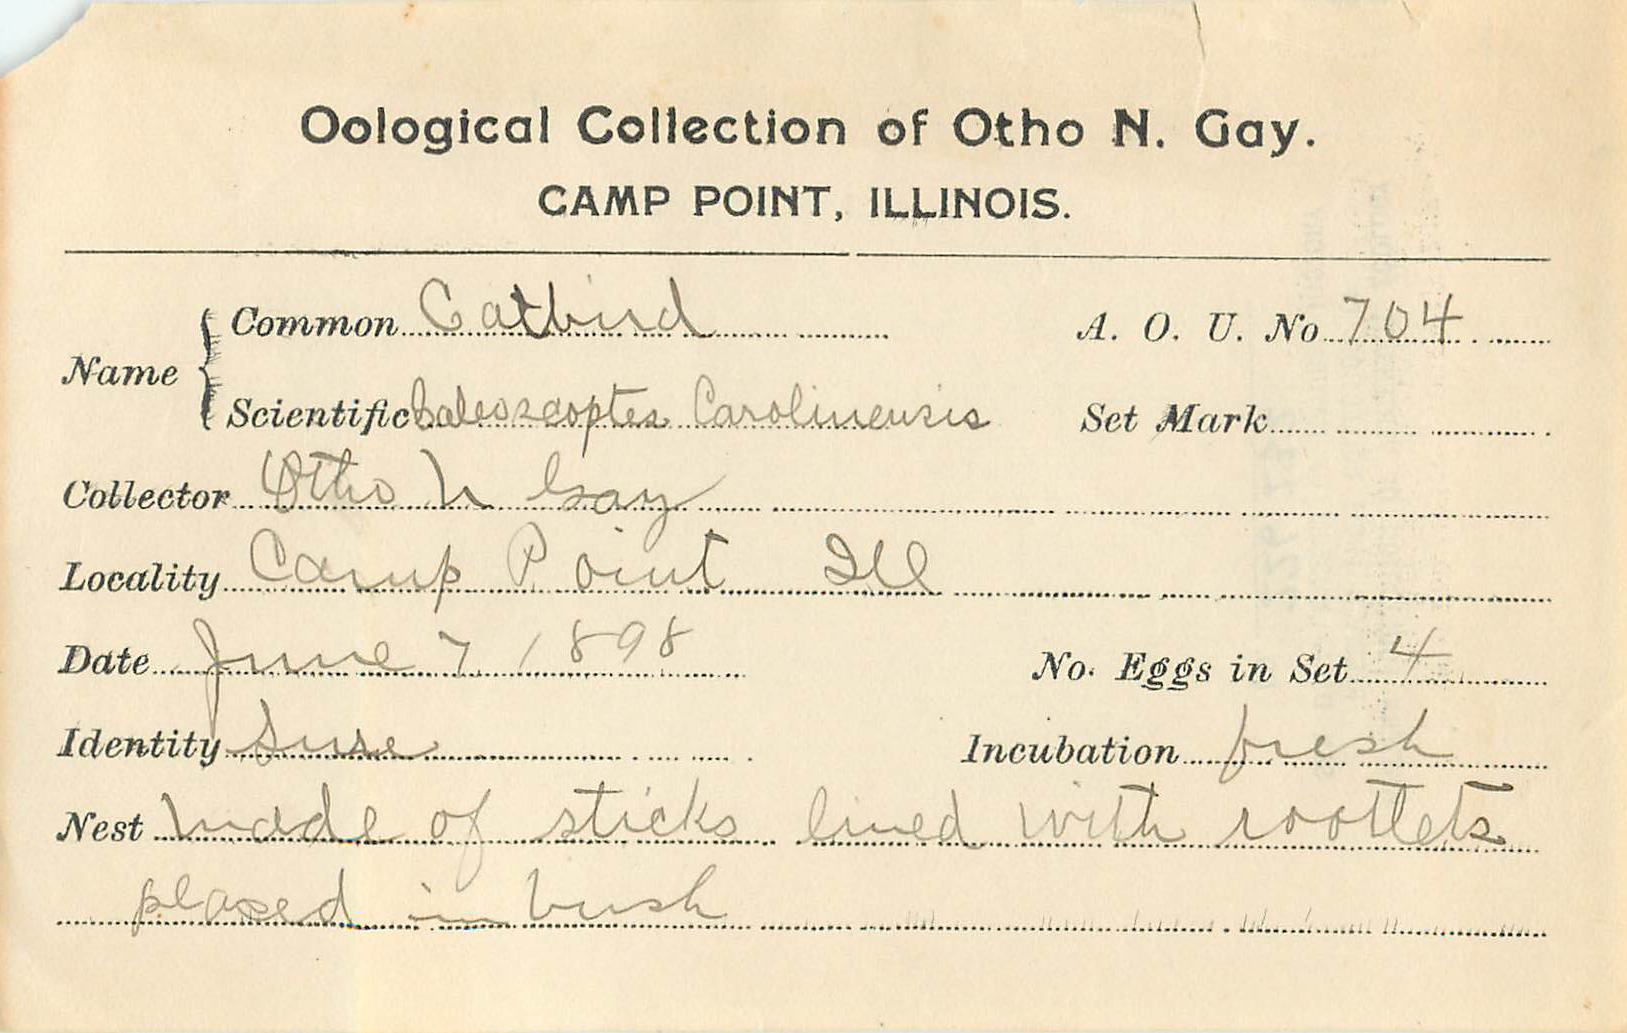 Oological Collection of Otho N. Gay.
CAMP POINT, ILLINOIS.
Name { Common Catbird A. O. U. No 704
Scientific Galeoscoptes Carolinensis Set Mark
Collector Otho N Gay
Locality Camp Point Ill
Date June 7 1898 No. Eggs in Set 4
Identity Sure Incubation fresh
Nest Made of sticks lined with rootlets
placed in bush